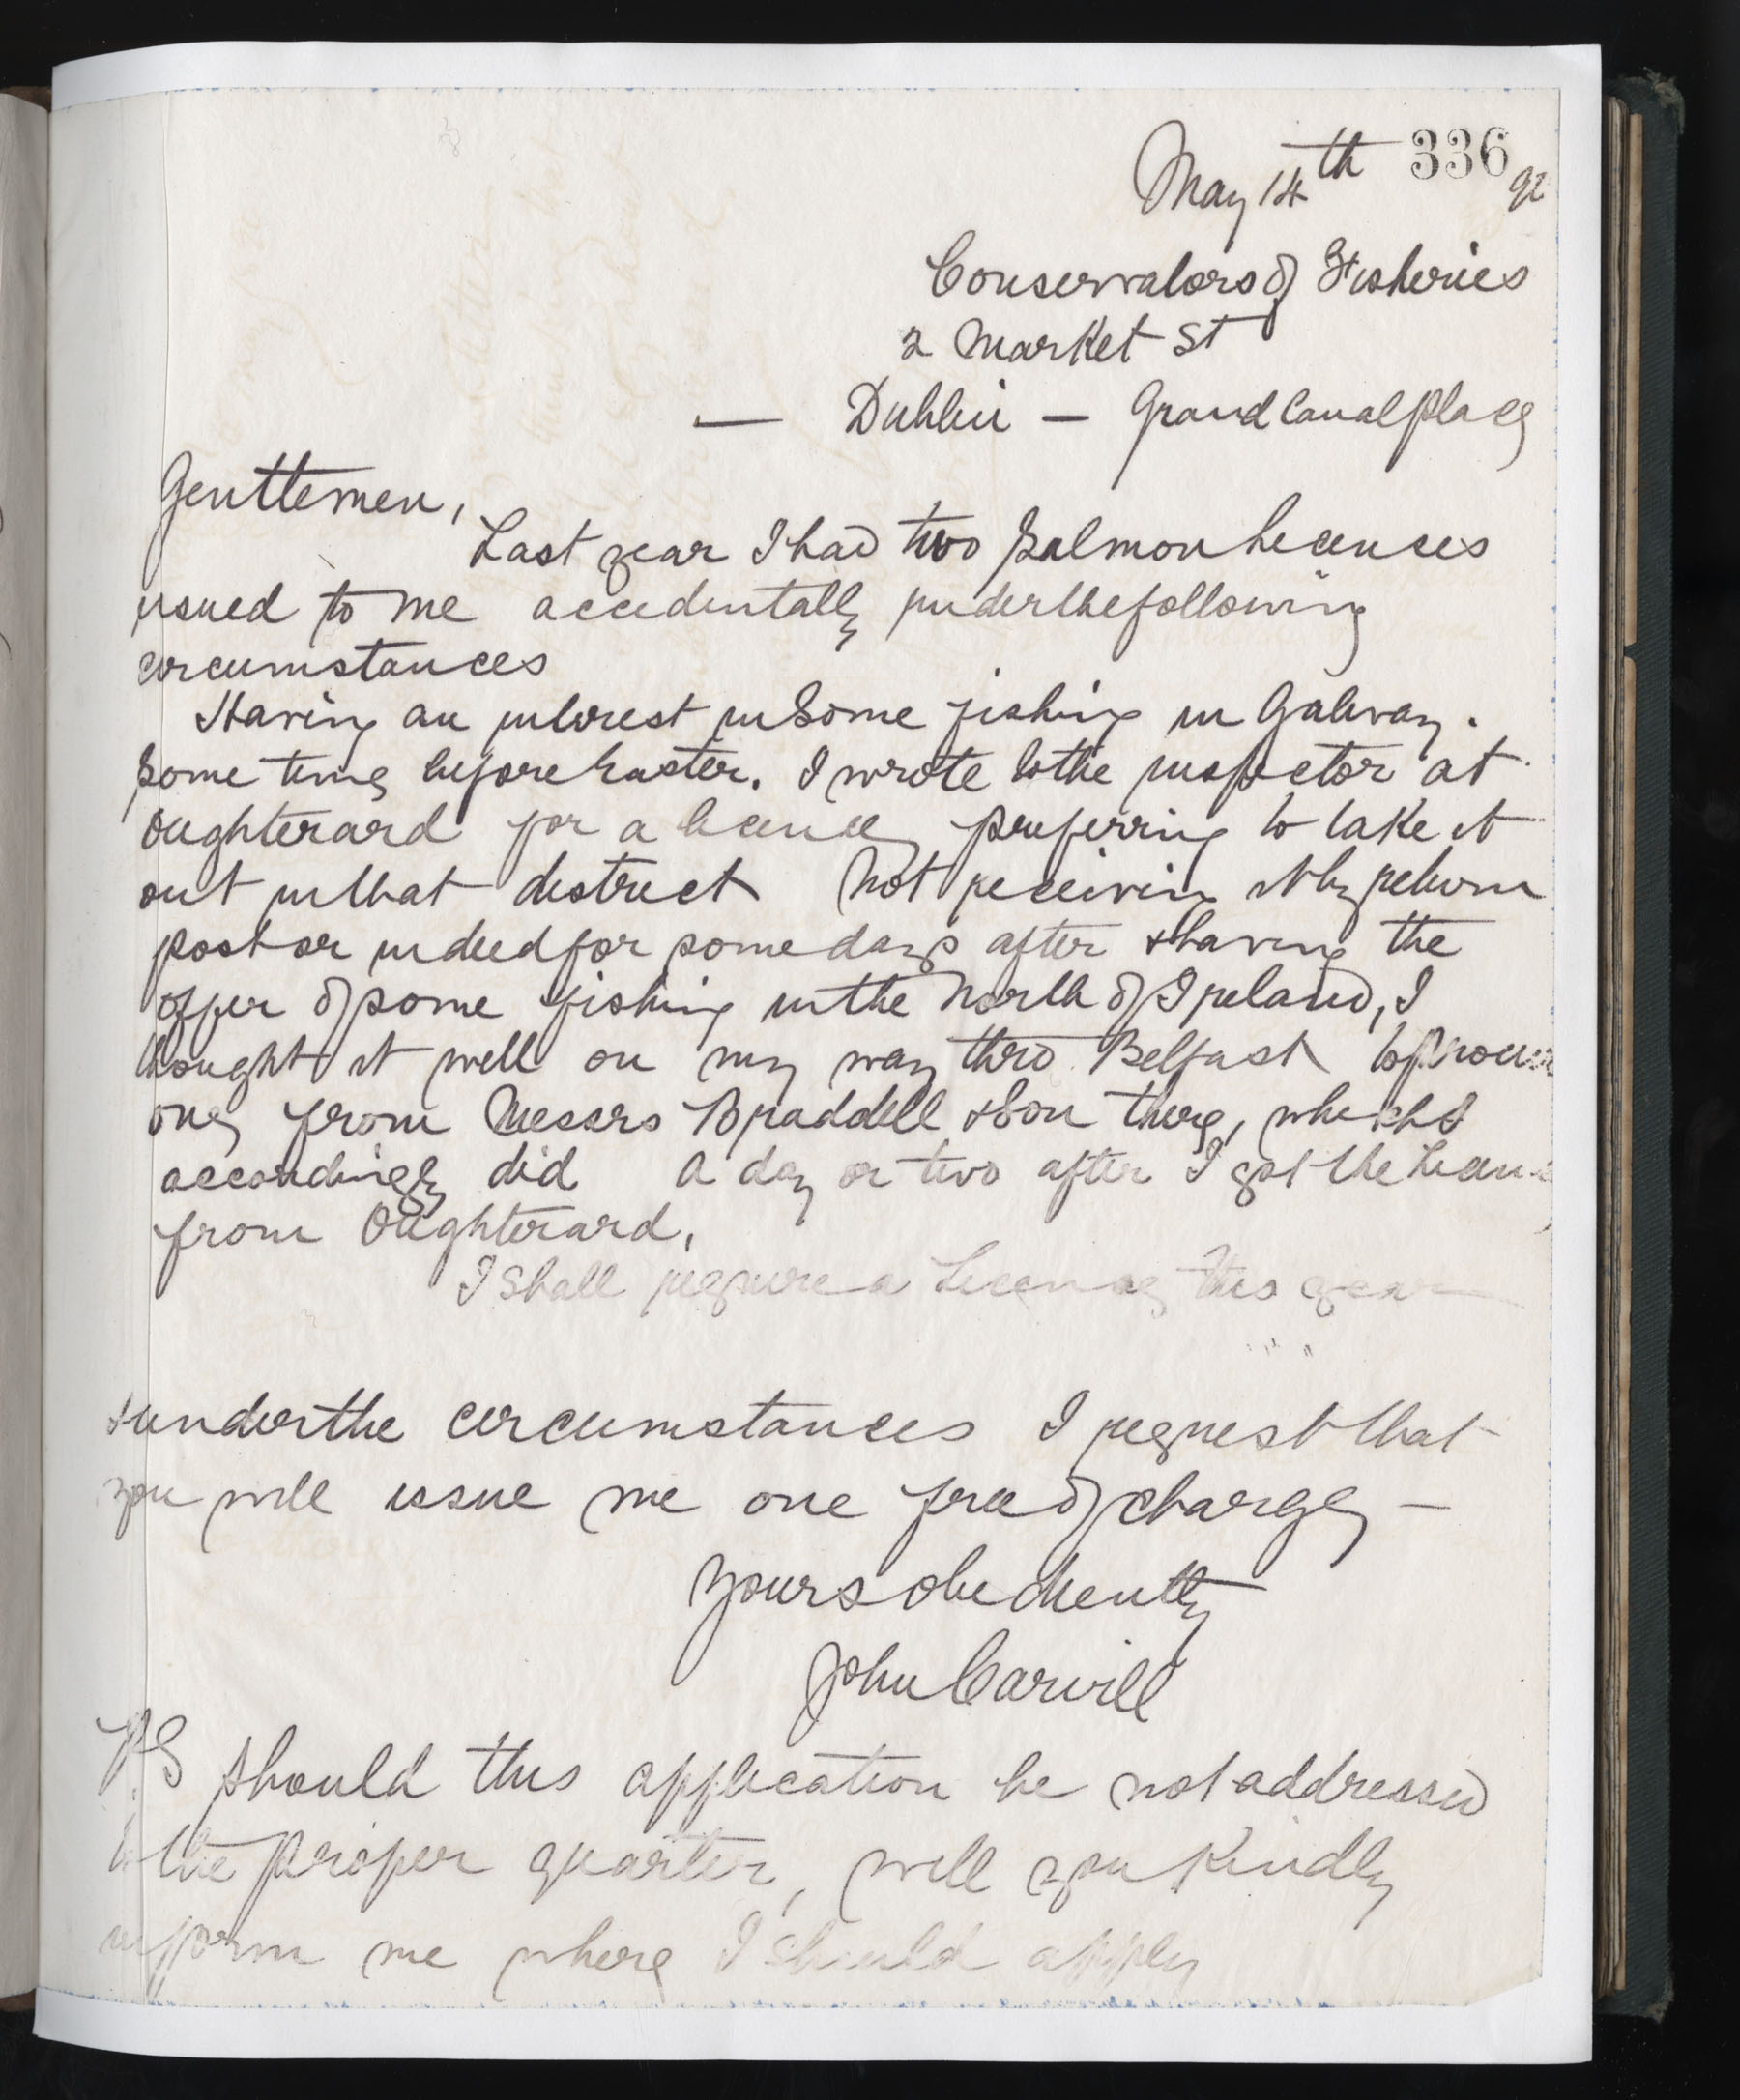 May 14th 336 92
Conservators of Fisheries
2 Market St
— Dublin — Grand Canal place
Gentlemen,
Last year I had two salmon licenses
issued to me accidentally under the following
circumstances
Having an interest in some fishing in Galway.
Some time before Easter. I wrote to the inspector at
Oughterard for a license preferring to take it
out in that district Not receiving it by return
post or indeed for some days after & having the
offer of some fishing in the North of Ireland, I
thought it well on my way thro Belfast to procure
one from Messrs Braddell & Son there, which I
accordingly did A day or two after I got the license
from Oughterard,
I shall require a License this year
& under the circumstances I request that
you will issue me one free of charge —
Yours obediently
John Carvill
PS should this application be not addressed
to the proper quarter, will you kindly
inform me where I should apply